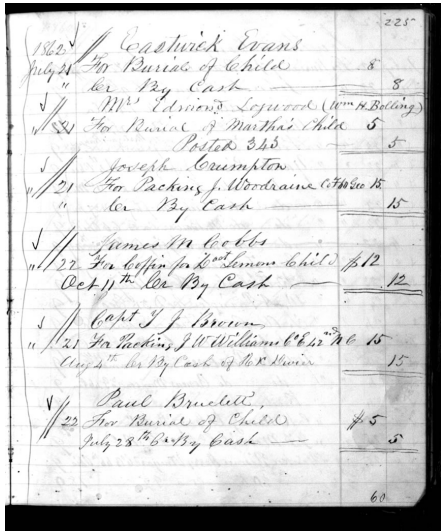 225
1862 // Eastwick Evans
July 21 For Burial of Child 8
" Cr By Cash 8
// Mrs Edmond Logwood (Wm H. Bolling)
" 21 For Burial of Martha's Child 5
Posted 343 5
// Joseph Crumpton
" 21 For Packing J. Woodraine Co F 60 Geo 15
" Cr By Cash 15
// James M Cobbs
" 22 For Coffin for Child $12
Oct 11th Cr By Cash 12
// Capt T J Brown
" 21 For Packing J W Williams Co E 42nd N C 15
Aug 4th Cr By Cash of R K 15
// Paul
22 For Burial of Child $5
July 28th Cr By Cash 5
60